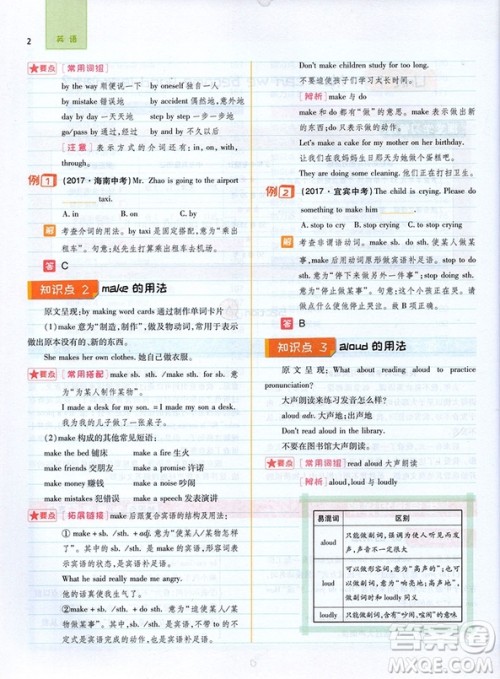 2
英 语
★要点 [常用词组]
by the way 顺便说一下 by oneself 独自一人
by mistake 错误地 by accident 偶然地,意外地
day by day 一天天地 step by step 一步一步
go/pass by 通过,经过
[注意] 表示方式的介词还有:in, on, with, through.
例1 (2017·海南中考) Mr. Zhao is going to the airport
taxi.
A. in B. on C. by
解 考查介词的用法。by taxi 是固定搭配,意为“乘出
租车”。句意:赵先生打算乘出租车去机场。
答 C
知识点 2 make 的用法
原文呈现:by making word cards 通过制作单词卡片
(1)make 意为“制造,制作”,做及物动词,常用来表示
做出原本没有的、新的东西。
She makes her own clothes. 她自己做衣服。
★要点 [常用搭配] make sb. sth. /make sth. for sb.
“为某人制作某物”
I made my son a desk. = I made a desk for my son.
我给我的儿子做了一张桌子。
(2)make 构成的其他常见短语:
make the bed 铺床 make a fire 生火
make friends 交朋友 make a promise 许诺
make money 赚钱 make a noise 吵闹
make mistakes 犯错误 make a speech 发表演讲
★要点 [拓展链接] make 后跟复合宾语的常见结构:
①make + sb. /sth. + adj. 意为“使某人/某物怎样
了”。其中, sb. /sth. 是宾语,形容词表示宾语
的性质、状态,是宾语补足语。
What he said really made me angry.
他说的话真的使我很生气。
②make + sb. /sth. + do sth. 意为“使某人做某事/使
某物做某事”。其中,sb. /sth. 是宾语,do sth. 表示
宾语完成的动作,也是宾语补足语。
Don't make children study for too much time.
不要迫使孩子们学习太长时间。
[辨析] make 与 do
make 和 do 都有“做”的意思。make 表示做出新
的东西,而 do 表示做某个动作或某件事。
Let's make a cake for my mother on her birthday.
让我们在我妈妈生日那天给她做个蛋糕吧。
They are doing some cleaning. 他们正在打扫卫生。
例2 (2017·宜宾中考) The child is crying. Please do
something to make him
A. stop to cry B. stop crying
C. to stop crying
解 考查非谓语动词。make sb. do sth. 使某人做某
事,make 后用动词原形做宾语补足语。stop doing
sth. 停止做某事。句意:这个小孩正在哭。请做
些事情使他停止哭泣。
答 B
知识点 3 aloud 的用法
原文呈现: What about reading aloud to practice
pronunciation?
大声朗读来练习发音怎么样?
aloud adv. 大声地;出声地
Don't read aloud in the library.
不要在图书馆大声朗读。
★要点 [常用词组] read aloud 大声朗读
[辨析] aloud, loud 与 loudly
易混词 区别
aloud 只能做副词,强调为使人听见而发出声音,声音不一定很大
loud 可以做形容词,意为“高声的”;也可以做副词,意为“响亮地;高声地”,其反义词为 low
loudly 只能做副词,含有“吵闹,喧闹”的意味
作业圈
MXQE.COM